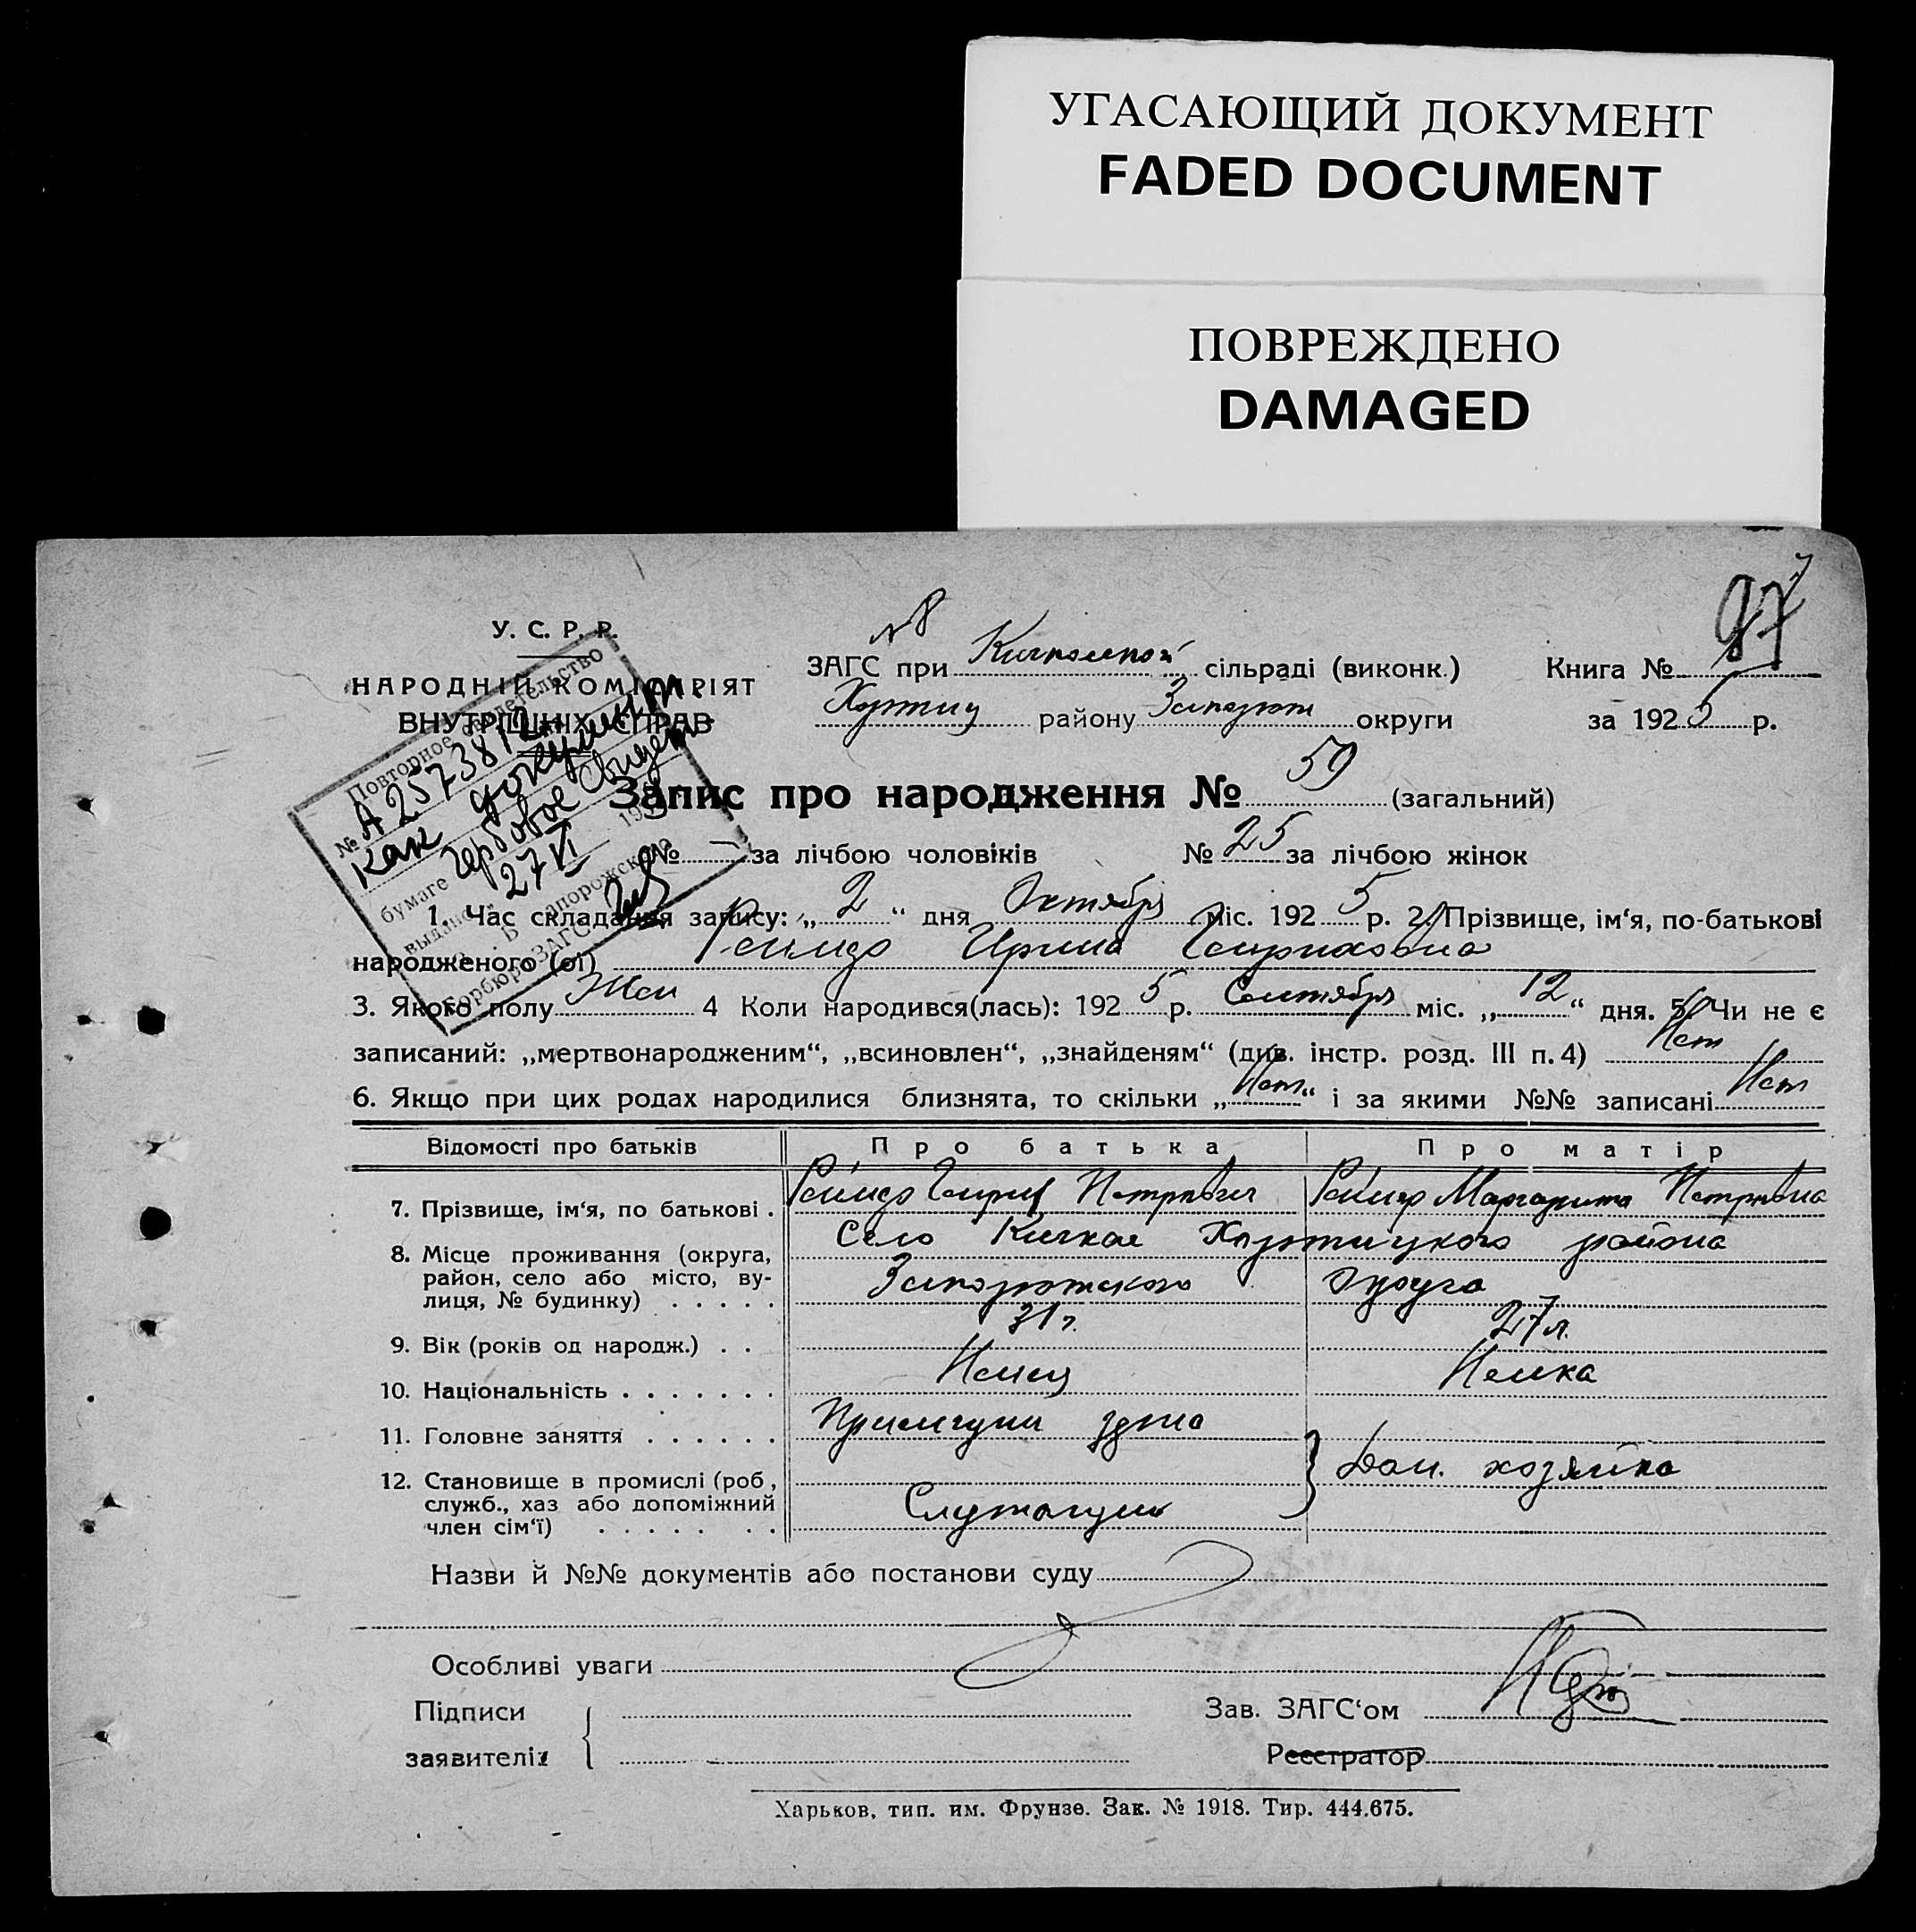 УГАСАЮЩИЙ ДОКУМЕНТ
FADED DOCUMENT
ПОВРЕЖДЕНО
DAMAGED
97
У. С. Р. Р.
НАРОДНІЙ КОМІСАРІЯТ
ВНУТРІШНІХ СПРАВ
№ 8
ЗАГС при Кичкасской сільраді (виконк.) Книга №
Хортиц району Запорож округи за 1925 р.
Повторное свидетельство
№ А 2573812
как документ.
бумаге гербовое свидет
выдано „ 27 VI 19
Горбюро ЗАГС Запорожского
Запис про народження № 59 (загальний)
№ — за лічбою чоловіків № 25 за лічбою жінок
1. Час складання запису: „ 2 “ дня Октября міс. 1925 р. 2. Прізвище, ім‘я, по-батькові
народженого (ої) Ирина Генриховна
3. Якого полу Жен 4 Коли народився(лась): 1925 р. Сентября міс. „ 12 “ дня. 5. Чи не є
записаний: „мертвонародженим“, „всиновлен“, „знайденям“ (див. інстр. розд. III п. 4) Нет
6. Якщо при цих родах народилися близнята, то скільки „ Нет “ і за якими №№ записані Нет
Відомості про батьків Про батька Про матір
7. Прізвище, ім‘я, по батькові . Генрих Петрович Маргарита Петровна
8. Місце проживання (округа, район, село або місто, вулиця, № будинку) . . . . . Село Кичкас Хортицкого района
Запорожского Округа
9. Вік (років од народж.) . . 31 г. 27 л.
10. Національність . . . . . . . Немец Немка
11. Головне заняття . . . . . .
12. Становище в промислі (роб, служб., хаз або допоміжний член сім‘ї) . . . . . . . Служащий Дом. хозяйка
Назви й №№ документів або постанови суду
Особливі уваги
Підписи
заявителів
Зав. ЗАГС‘ом
Реєстратор
Харьков, тип. им. Фрунзе. Зак. № 1918. Тир. 444.675.